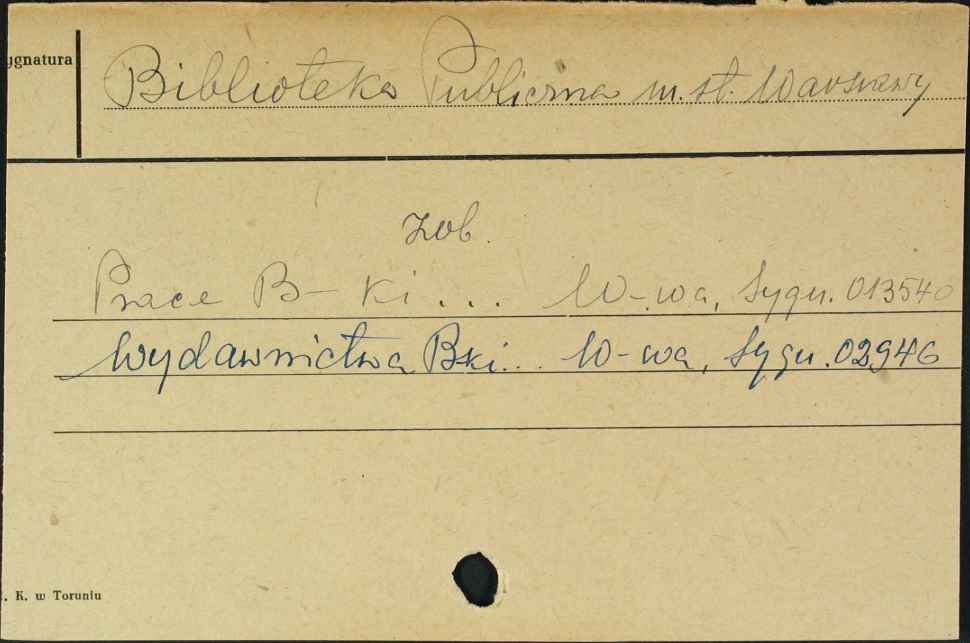 ygnatura
Biblioteka Publiczna m. st. Warszawy
zob.
Prace B-ki... W-wa, Sygn. 013540
Wydawnictwa Bki... W-wa, Sygn. 02946
. K. w Toruniu